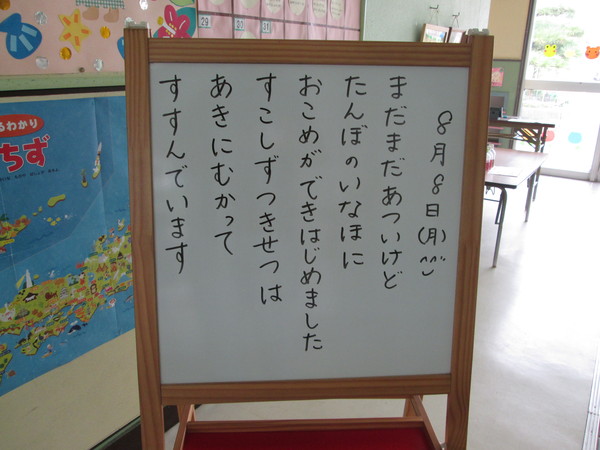 8月8日(月)^^
まだまだあついけど
たんぼのいなほに
おこめができはじめました
すこしずつきせつは
あきにむかって
すすんでいます
るわかり
ちず
29
30
31